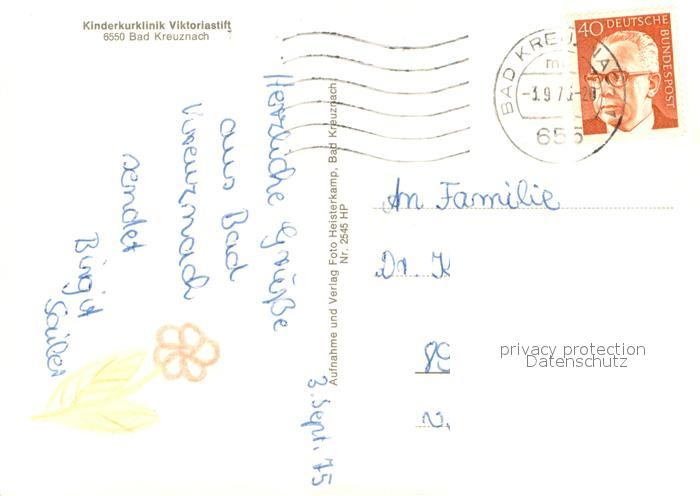 Kinderkurklinik Viktoriastift
6550 Bad Kreuznach
Herzliche Grüße
aus Bad
Kreuznach
sendet
Birgit
3. Sept. 75
Aufnahme und Verlag Foto Heisterkamp, Bad Kreuznach
Nr. 2545 HP
40 DEUTSCHE
BUNDESPOST
BAD KREUZNAC
655
An Familie
Dr. K
privacy protection
Datenschutz